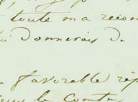 toute ma recon
donnerais d
favorable rép
le Comte